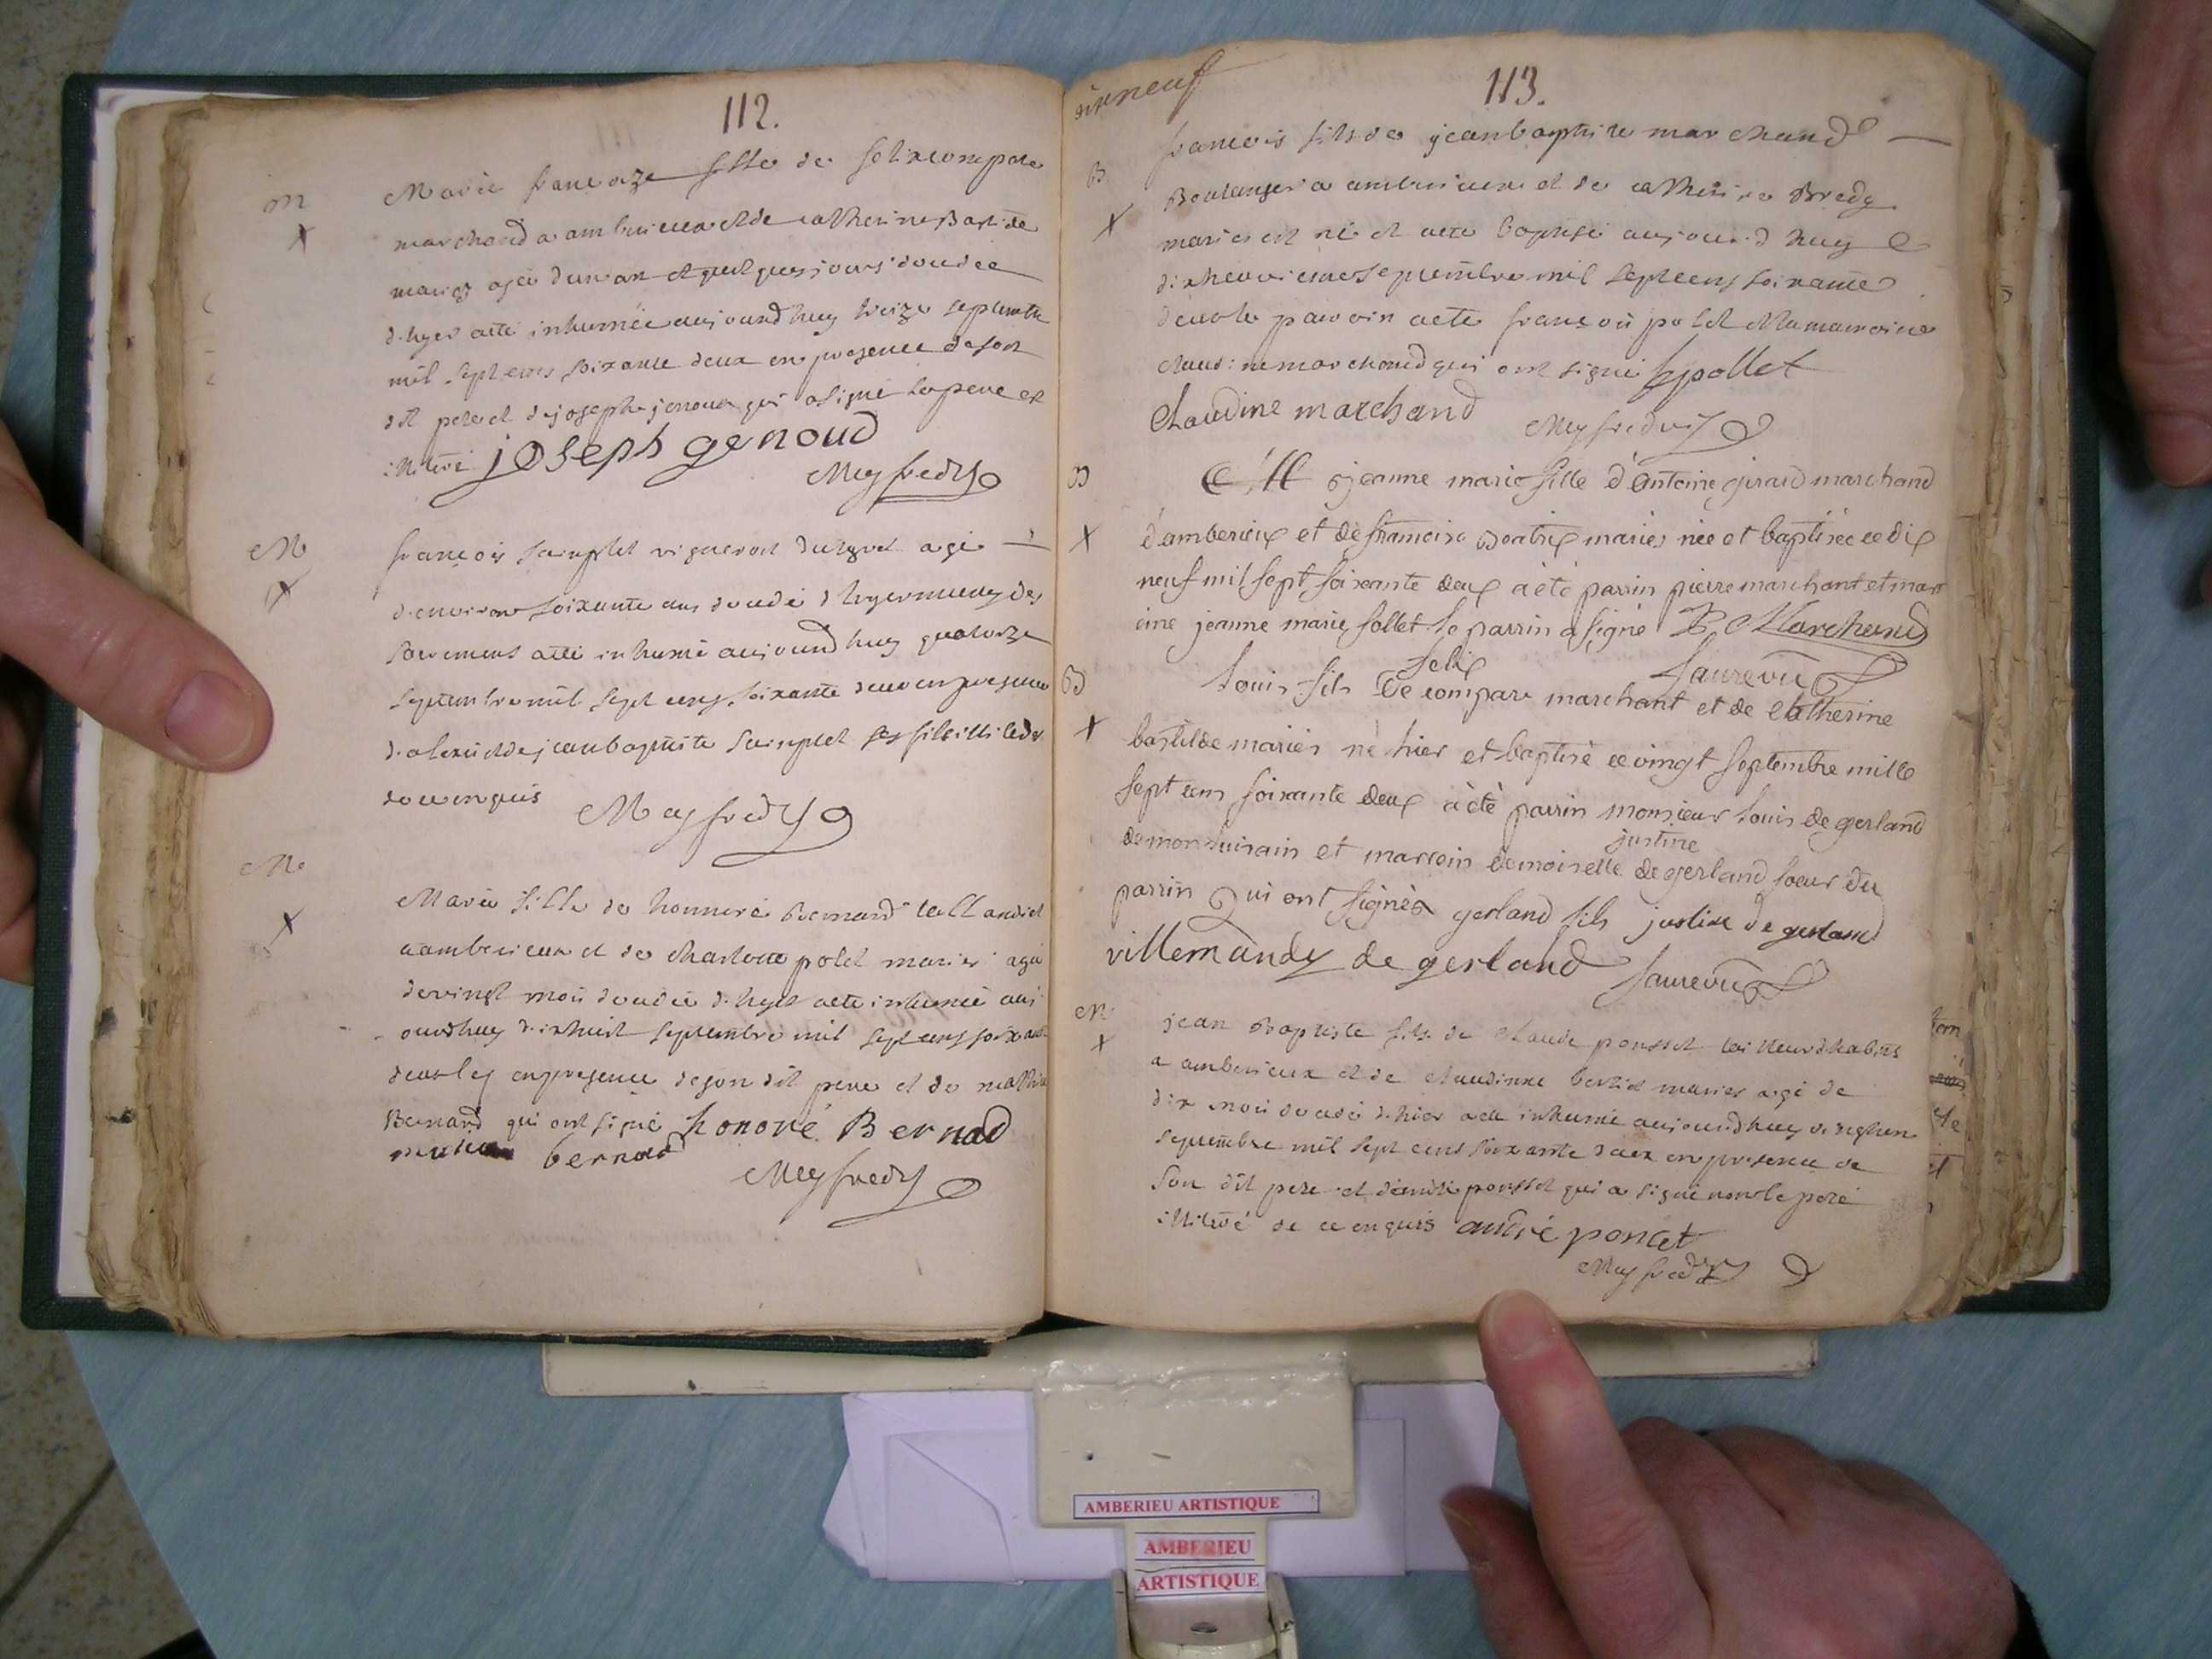 112.
M
Marie francoize fille de felix compare
marchand a amberieux et de catherine Bastide
mariez agée d'un an et quelques jours décédée
d'hyer a été inhumée aujourd'huy treize septembre
mil sept cens soixante deux en presence de son
dit pere et de joseph jenoux qui a signé le pere est
illitéré joseph genoud
Meyfredy
M
françois sainplet vigneron du tyret agé
d'environ soixante ans décédé d'hyer muny des
sacremens a été inhumé aujourd'huy quatorze
septembre mil sept cens soixante deux en presence
d'alexis et de jean baptiste sainplet ses fils illiterés
de ce enquis Meyfredy
M
Marie fille de honnoré Bernard taillandier
a amberieux et de charlotte polet mariés agée
de vingt mois décédée d'hyer a été inhumée auj
ourdhuy dixhuit septembre mil sept cens soixante
deux en presence de son dit pere et de
Bernard qui ont signé honoré Bernad
bernard
Meyfredy
dixneuf
113.
B
francois fils de jean baptiste marchand
Boulanger a amberieux et de catherine Bredy
mariés est né et a été baptisé aujourd'huy
dixneuvieme septembre mil sept cens soixante
deux le parrain a été françois polet et la marraine
claudine marchand qui ont signé f pollet
Claudine marchand Meyfredy
B
jeanne marie fille d'entoine girard marchand
d'amberieux et de francoise Beatrix mariés née et baptisée ce dix
neuf mil sept soixante deux à été parrin pierre marchant et marr
eine jeanne marie follet le parrin a signé P. Marchand
B
felix
Louis fils de compare marchant et de Catherine
bastilde mariés né hier et baptisé ce vingt septembre mille
sept cens soixante deux à été parrin monsieur louis de gerland
justine
de et marrein demoiselle de gerland soeur du
parrin Qui ont signés gerland fils justine de gerland
villemandy de gerland
M
jean Baptiste fils de claude pousset tailleur d'habits
a amberieux et de claudinne mariés agé de
dix mois décédé d'hier a été inhumé aujourdhuy vinghun
septembre mil sept cens soixante deux en presence de
son dit pere et d'andré pousset qui a signé non le pere
illitéré de ce enquis andré poncet
Meyfredy
AMBERIEU ARTISTIQUE
AMBERIEU
ARTISTIQUE